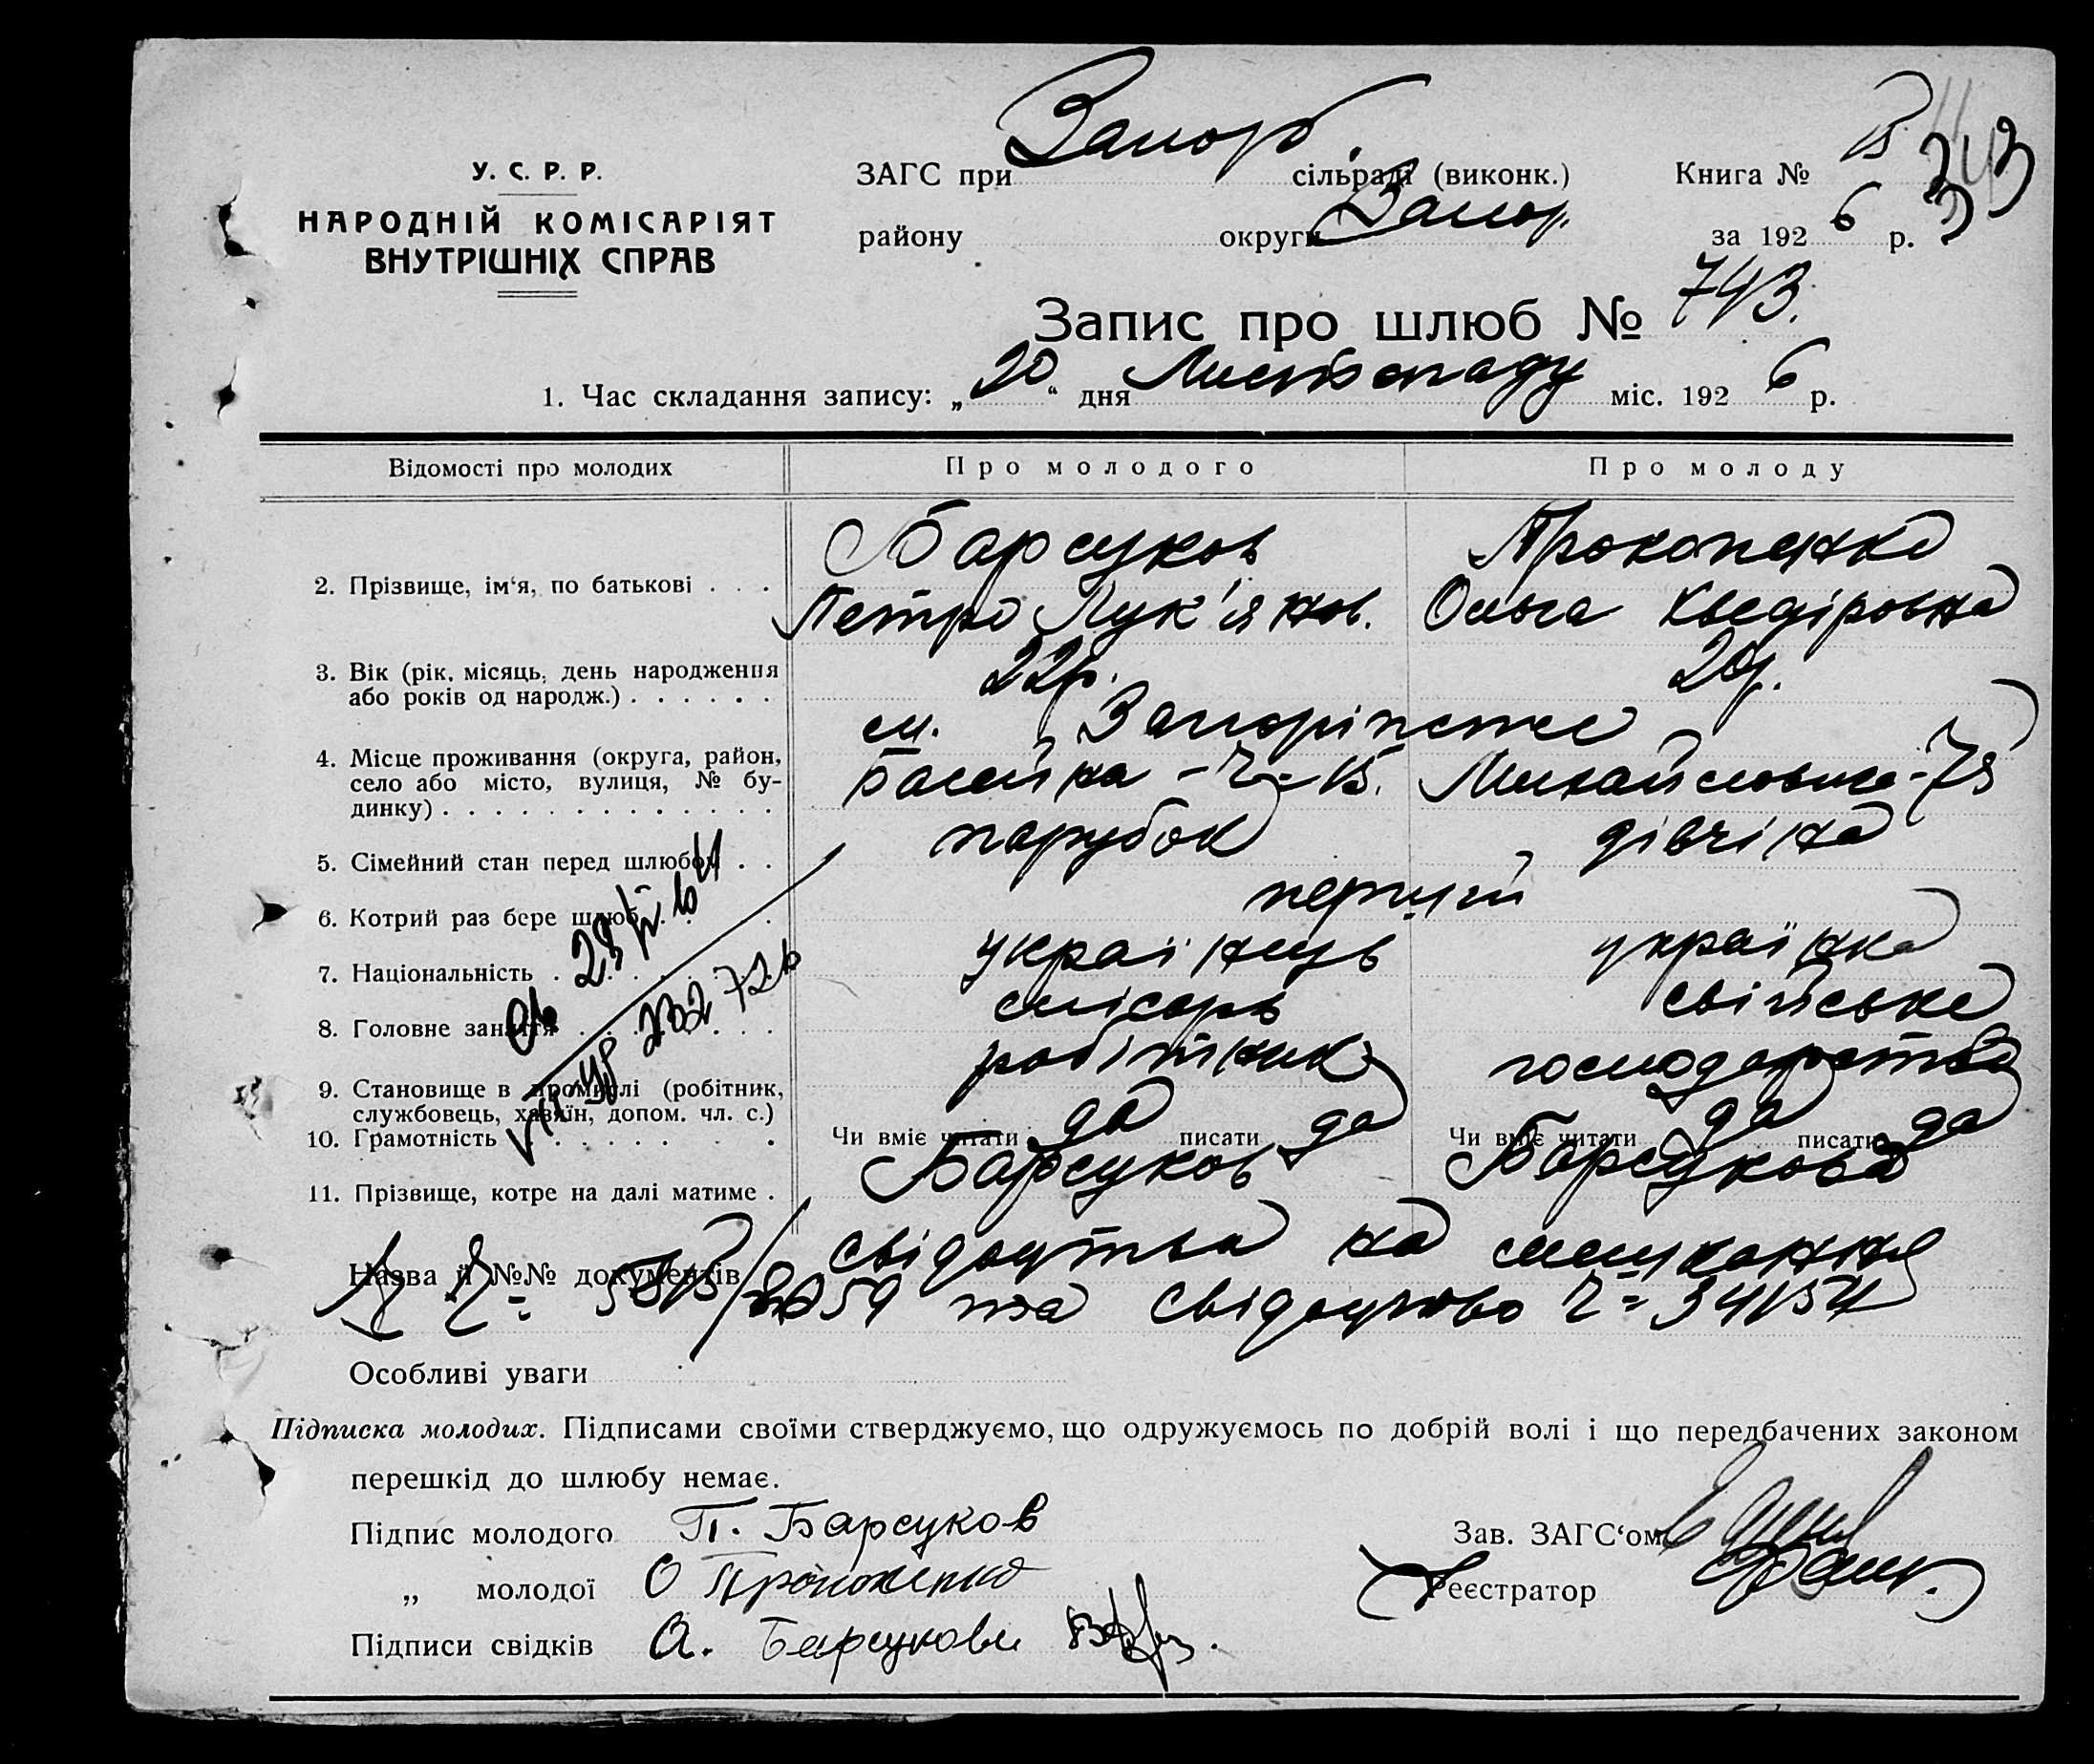 У. С. Р. Р.
НАРОДНІЙ КОМІСАРІЯТ
ВНУТРІШНІХ СПРАВ
ЗАГС при Запор. сільраді (виконк.)
району округи Запор.
Книга №
за 192 6 р.
Запис про шлюб № 743.
1. Час складання запису: „ 20 “ дня Листопаду міс. 192 6 р.
Відомості про молодих Про молодого Про молоду
2. Прізвище, ім‘я, по батькові . . . Барсуков Петро Лук'янов. Прокопенко Ольга Хведіровна
3. Вік (рік, місяць, день народження
або років од народж.) . . . . . . 22р. 20р.
4. Місце проживання (округа, район,
село або місто, вулиця, № бу-
динку) . . . . . . . . . . . . . м. Запоріжже
5. Сімейний стан перед шлюбом . . парубок дівчіна
6. Котрий раз бере шлюб . . . . перший
7. Національність . . . . . . . українець українка
8. Головне заняття . . . . . . . слісарь свійське
9. Становище в промислі (робітник,
службовець, хазяїн, допом. чл. с.) робітник господарство
10. Грамотність . . . . . . . Чи вміє читати да писати да Чи вміє читати да писати да
11. Прізвище, котре на далі матиме . Барсуков Барсукова
Назва й №№ документів Свідоцтва на мешкання
та свідоцтво Ч= 34154
Особливі уваги
Підписка молодих. Підписами своїми стверджуємо, що одружуємось по добрій волі і що передбачених законом
перешкід до шлюбу немає.
Підпис молодого П. Барсуков
„ молодої О Прокопенко
Підписи свідків А. Барсукова
Зав. ЗАГС‘ом
Реєстратор